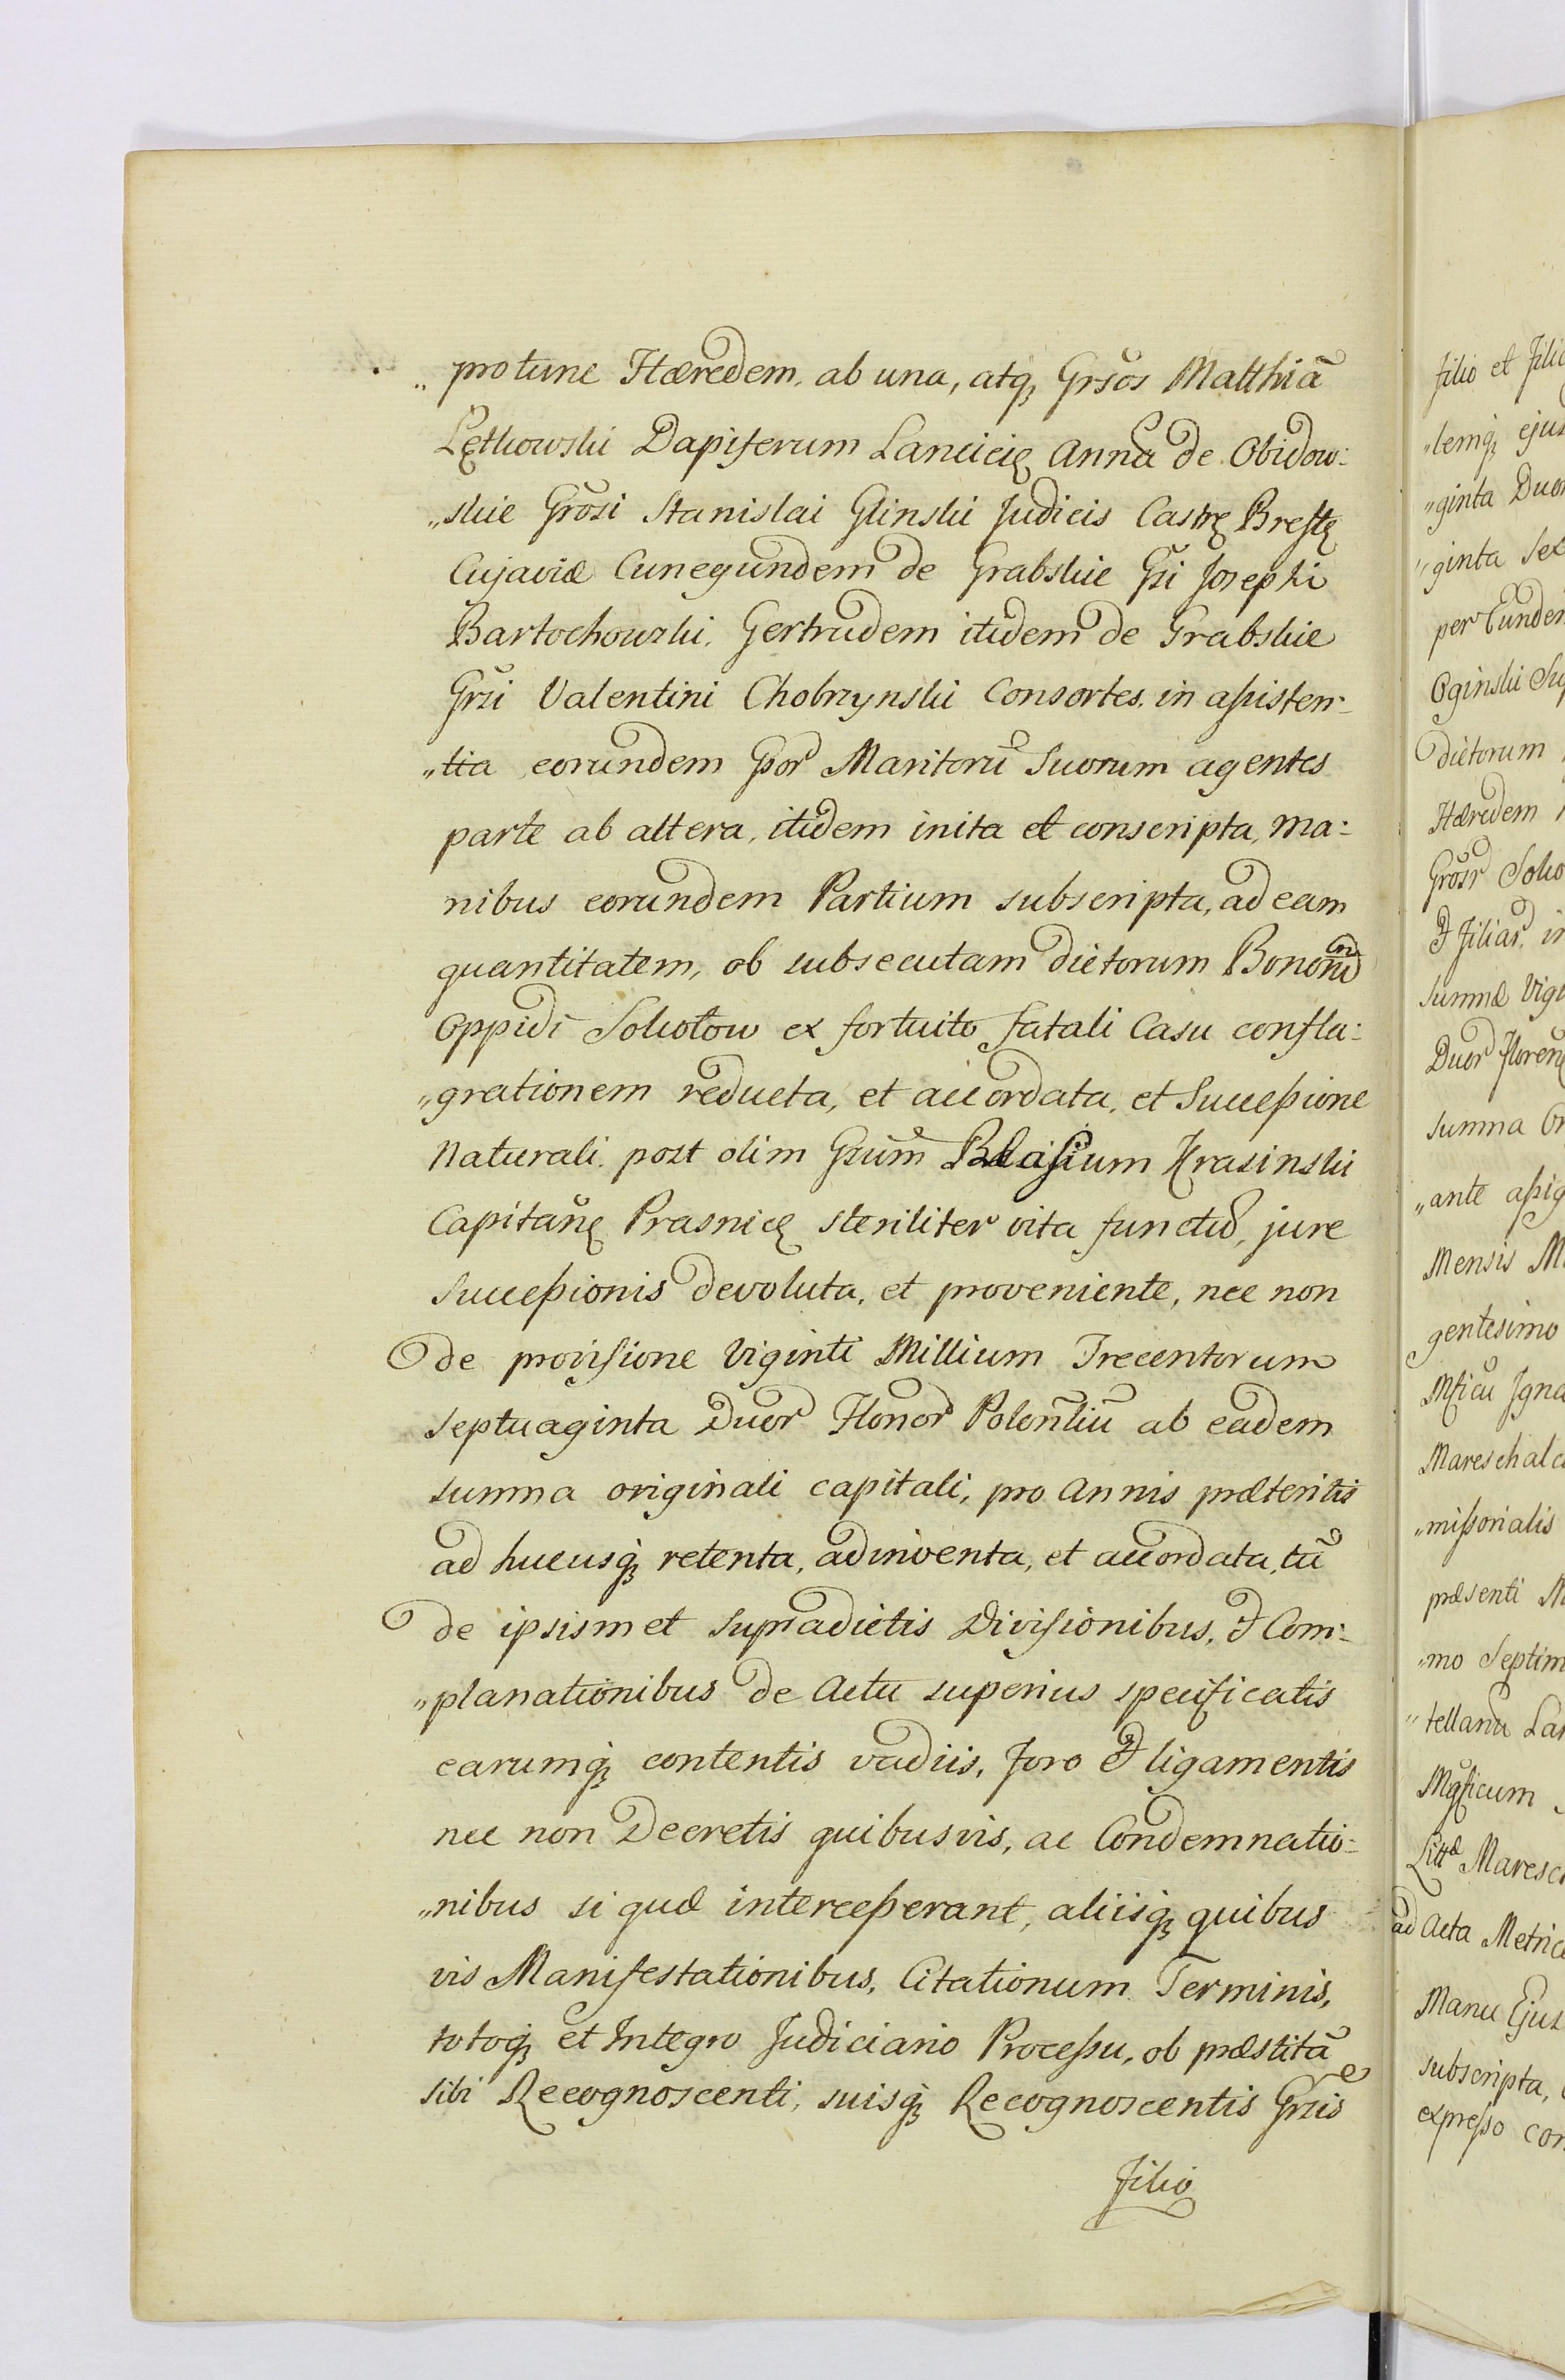 „ protunc Hæredem, ab una, atq, Grsos Matthiã
Lętkowski Dapiferum Lancicię Annã de Obidow:
„skie Grosi Stanislai Glinski Judicis Castrę Brestę
Cujaviæ Cunegundem de Grabskie Gri Josephi
Bartochowski, Gertrudem itidem de Grabskie
Grsi Valentini Chobrzynski Consortes, in assisten:
„tia eorundem Gsor Maritorũ Suorum agentes
parte ab altera, itidem inita et conscripta, ma:
nibus eorundem Partium subscripta, ad eam
quantitatem, ob subsecutam dictorum Bonorũ
Oppidi Sokołow ex fortuito fatali Casu confla:
„grationem reducta, et accordata, et Successione
Naturali post olim Gsum Blasium Krasinski
Capitanę Prasnicę steriliter vita functũ, jure
Successionis devoluta, et proveniente, nec non
de provisione Viginti Millium Trecentorum
septuaginta Duor Flonor Polonliũ ab eadem
summa originali capitali, pro Annis præteritis
ad hucusq, retenta, adinventa, et accordata, tũ
de ipsismet supradictis Divisionibus, et Com:
„planationibus de Actu superius specificatis
earumq, contentis vadiis, foro et ligamentis
nec non Decretis quibusvis, ac Condemnatio:
„nibus si quæ intercesserant, aliisq, quibus
vis Manifestationibus, Citationum Terminis,
totoq, et Integro Judiciario Processu, ob præstitã
sibi Recognoscenti, suisq, Recognoscentis Grsis
Filio
filio et filia
„lemq, ejus
„ginta Duor
„ginta sex
per Eundem
Oginski
dictorum
Hæredem
Grosr Soko
et filiar, in
summæ Vigi
Duor floren
summa
„ante assig
Mensis
gentesimo
Mficũ Igna
Mareschalc
„missorialis
præsenti
„mo Septim
„tellanũ
Mgficum
Littæ Maresc
ad Acta Metric
Manu Ejus
subscripta,
expresso con